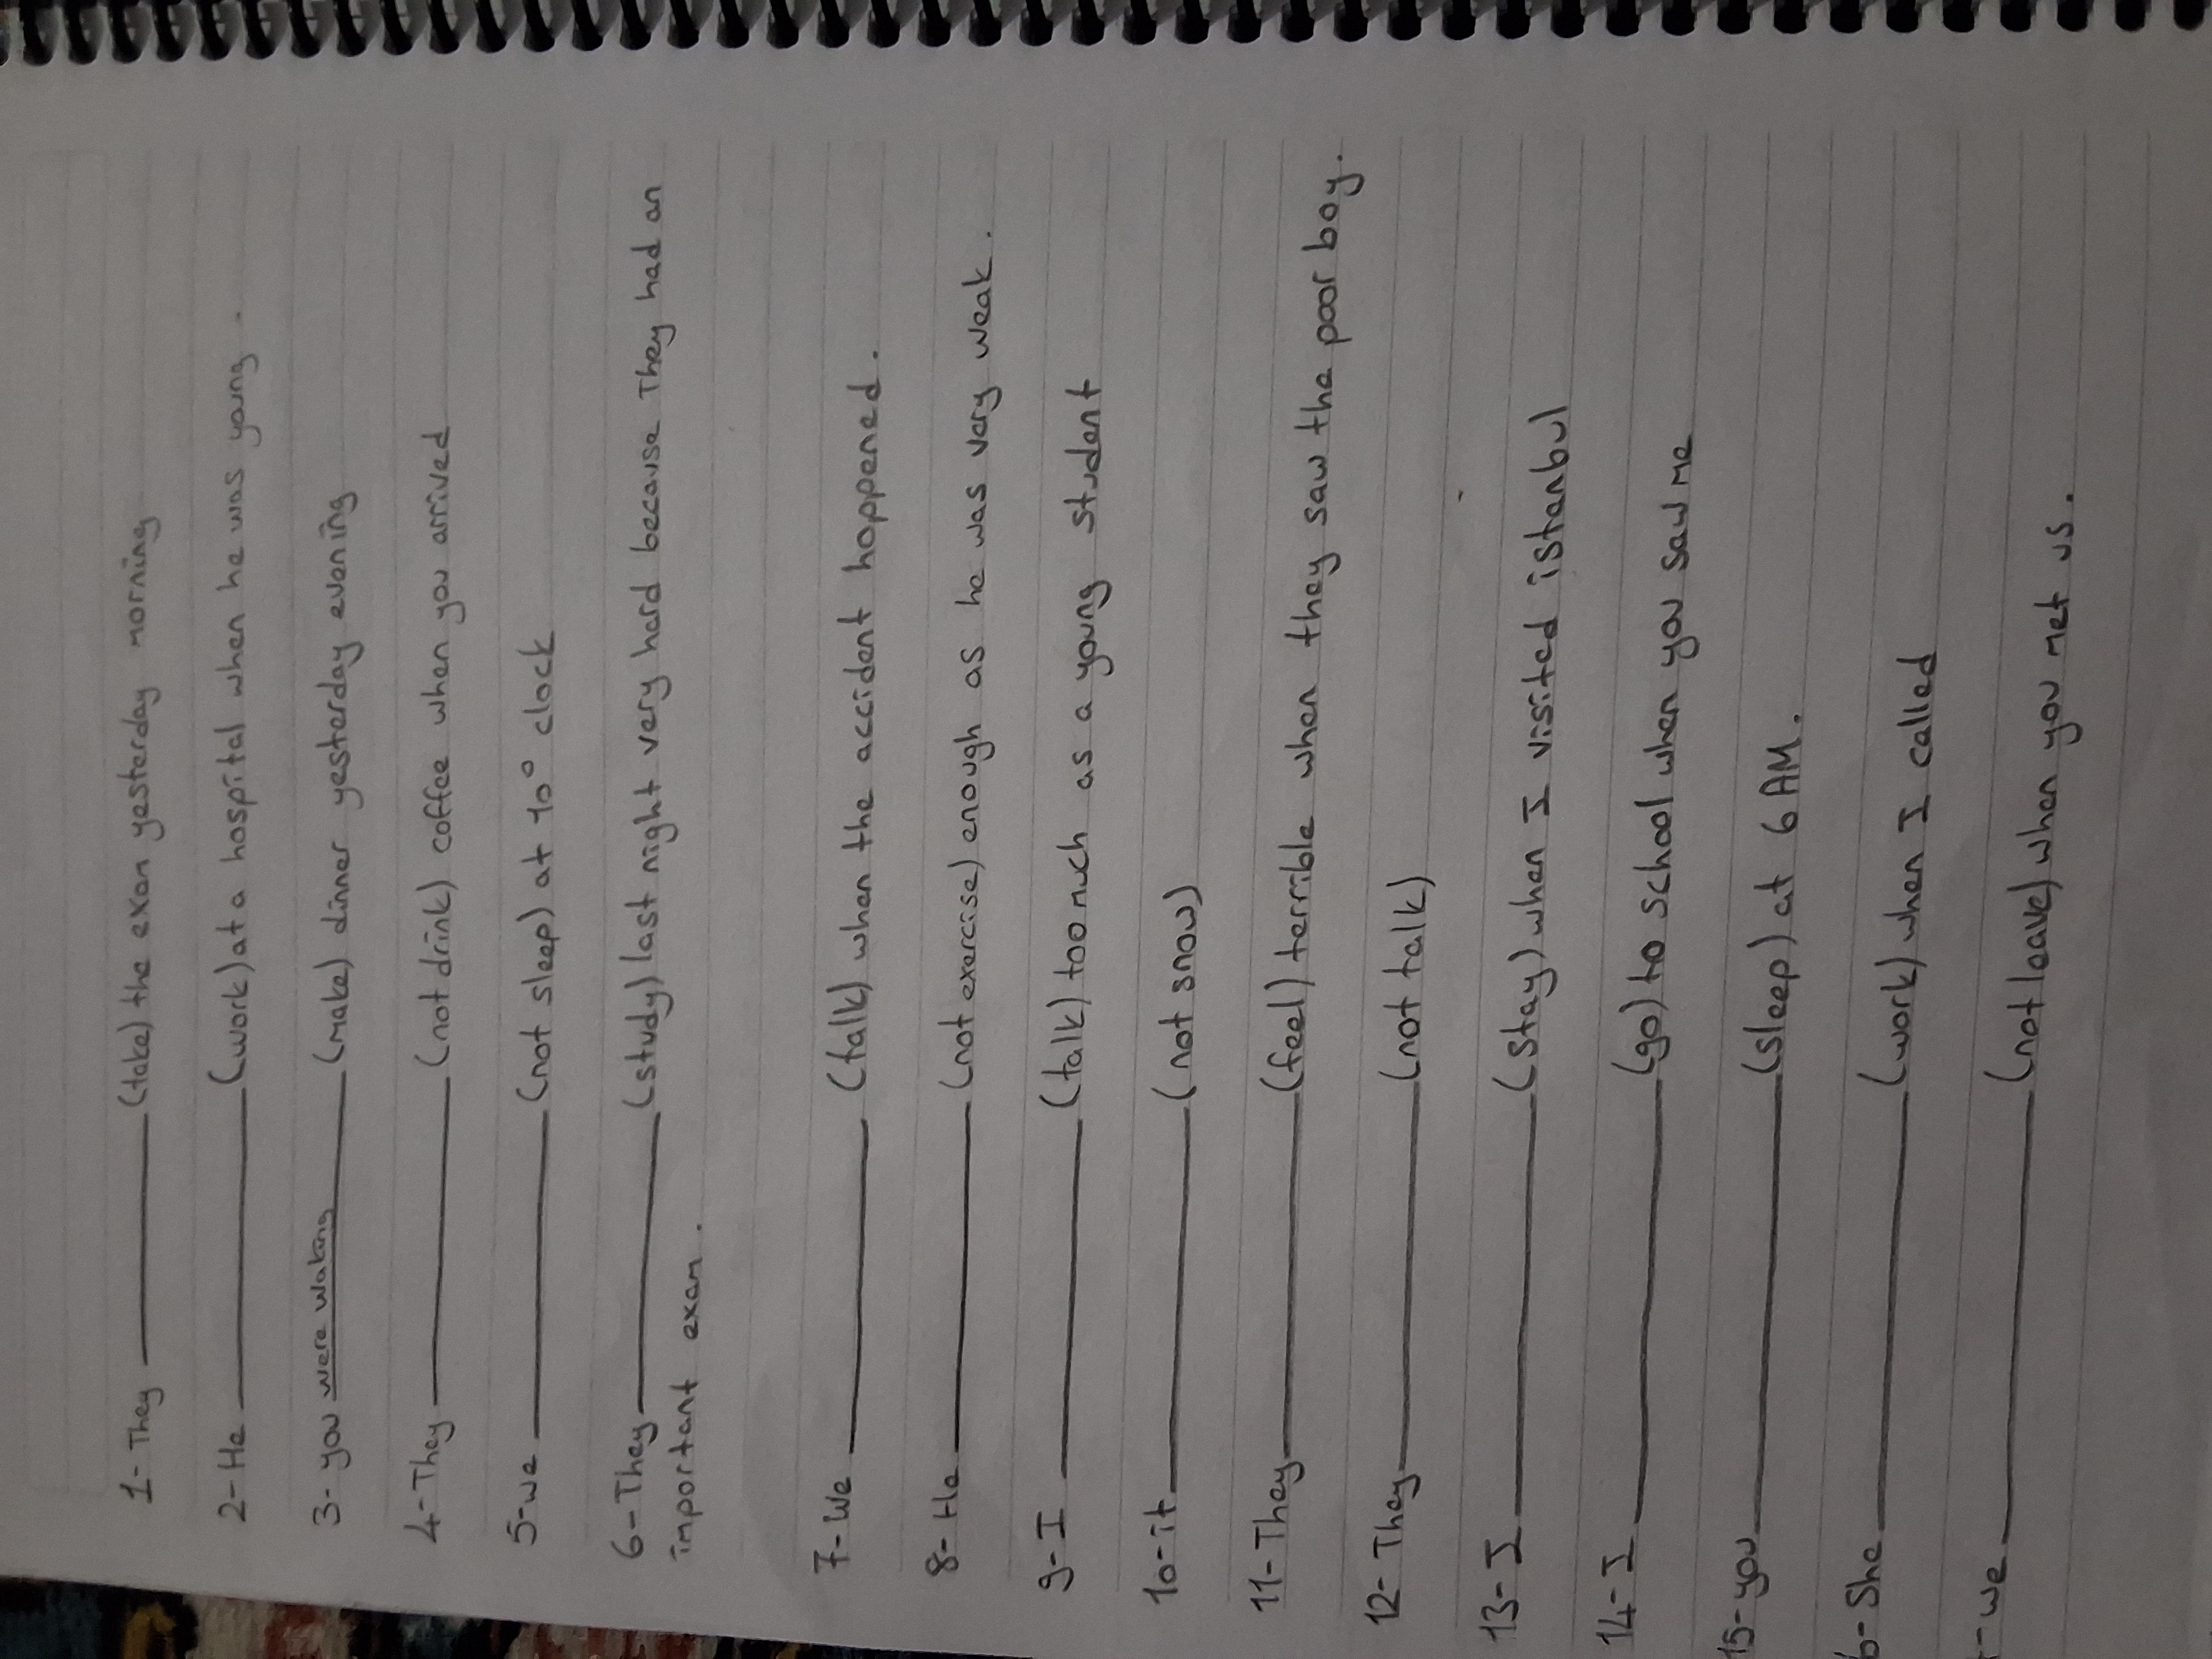 1- They __________ (take) the exam yesterday morning
2- He __________ (work) at a hospital when he was young.
3- you were waking __________ (make) dinner yesterday evening
4- They __________ (not drink) coffee when you arrived
5- we __________ (not sleep) at 10° clock
6- They __________ (study) last night very hard because They had an
important exam.
7- We __________ (talk) when the accident happened.
8- He __________ (not exercise) enough as he was very weak.
9- I __________ (talk) too much as a young student
10- it __________ (not snow)
11- They __________ (feel) terrible when they saw the poor boy.
12- They __________ (not talk)
13- I __________ (stay) when I visited istanbul
14- I __________ (go) to school when you saw me
15- you __________ (sleep) at 6 AM.
6- She __________ (work) when I called
- we __________ (not leave) when you met us.